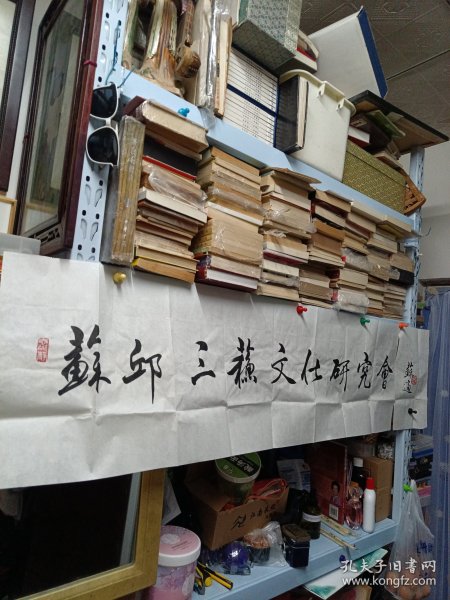 蘇邱三蘇文化研究會
孔夫子旧书网
www.kongfz.com